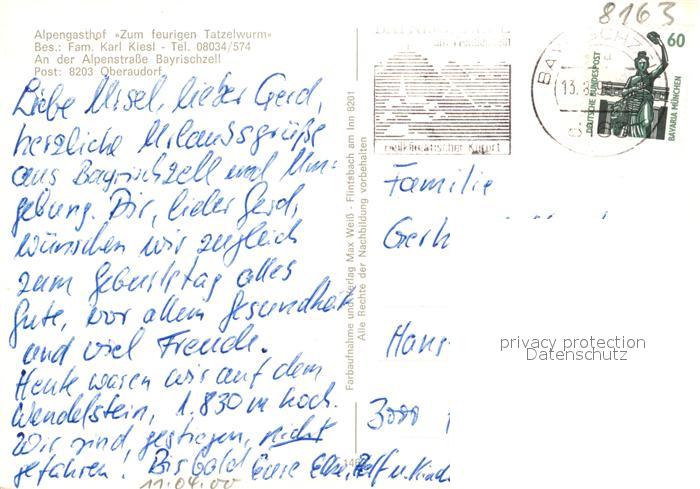 8163
Alpengasthof »Zum feurigen Tatzelwurm«
Bes.: Fam. Karl Kiesl - Tel. 08034/574
An der Alpenstraße Bayrischzell
Post: 8203 Oberaudorf
60
DEUTSCHE BUNDESPOST
BAVARIA MÜNCHEN
heilklimatischer Kurort
Farbaufnahme und Verlag Max Weiß - Flintsbach am Inn 8201
Alle Rechte der Nachbildung vorbehalten
Liebe Misel, lieber Gerd,
herzliche Urlaubsgrüße
aus Bayrischzell und Um-
gebung. Dir, lieber Gerd,
wünschen wir zugleich
zum Geburtstag alles
Gute, vor allem Gesundheit
und viel Freude.
Heute waren wir auf dem
Wendelstein, 1.830 m hoch.
Wir sind gestiegen, nicht
gefahren! Bis bald Eure Elke,
11.04.00
Familie
Gerh
Hans
3000
privacy protection
Datenschutz